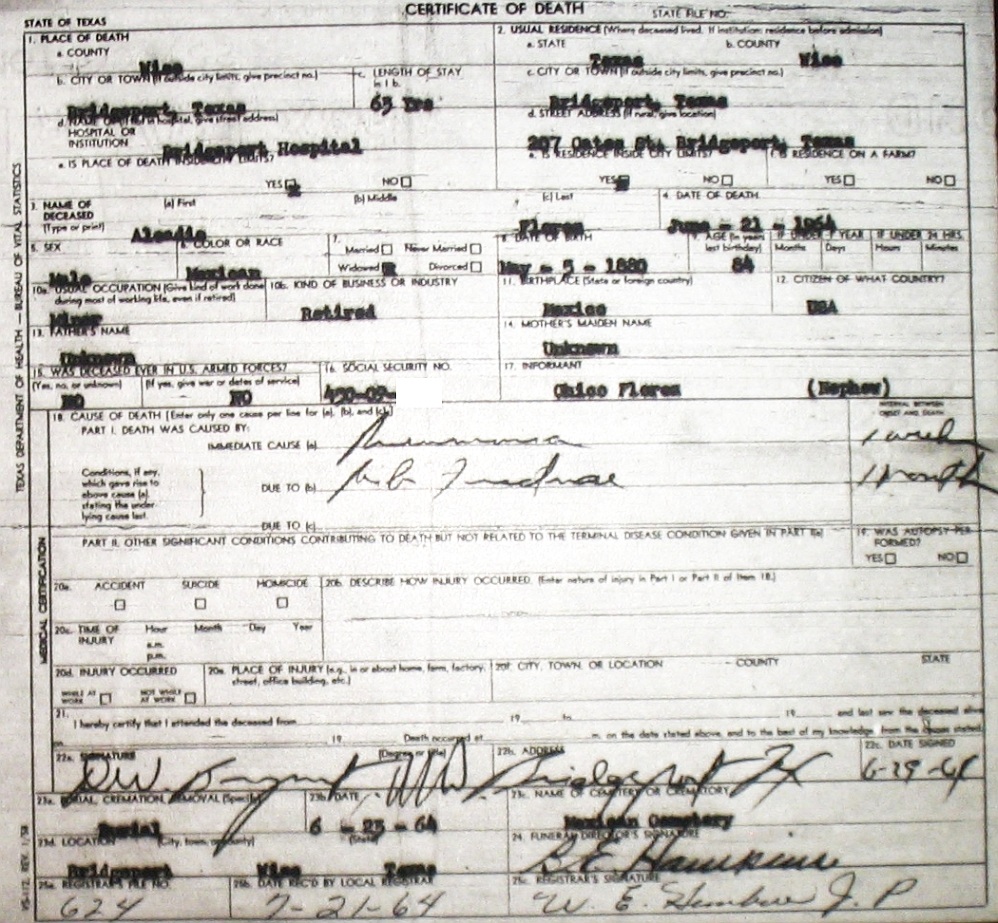 CERTIFICATE OF DEATH
STATE OF TEXAS STATE FILE NO.
1. PLACE OF DEATH 2. USUAL RESIDENCE (Where deceased lived. If institution: residence before admission)
a. COUNTY a. STATE b. COUNTY
Wise Texas Wise
b. CITY OR TOWN (If outside city limits, give precinct no.) c. LENGTH OF STAY in 1 b. c. CITY OR TOWN (If outside city limits, give precinct no.)
Bridgeport, Texas 65 Yrs Bridgeport, Texas
d. NAME OF (If not in hospital, give street address) HOSPITAL OR INSTITUTION d. STREET ADDRESS (If rural, give location)
Bridgeport Hospital 207 Oates St. Bridgeport, Texas
e. IS PLACE OF DEATH INSIDE CITY LIMITS? e. IS RESIDENCE INSIDE CITY LIMITS? f. IS RESIDENCE ON A FARM?
YES NO YES NO YES NO
3. NAME OF DECEASED (Type or print) (a) First (b) Middle (c) Last 4. DATE OF DEATH
Flores June - 21 - 1964
5. SEX 6. COLOR OR RACE 7. Married Never Married Widowed Divorced 8. DATE OF BIRTH 9. AGE (In years last birthday) IF UNDER 1 YEAR Months Days IF UNDER 24 HRS. Hours Minutes
Male Mexican May - 5 - 1880 84
10a. USUAL OCCUPATION (Give kind of work done during most of working life, even if retired) 10b. KIND OF BUSINESS OR INDUSTRY 11. BIRTHPLACE (State or foreign country) 12. CITIZEN OF WHAT COUNTRY?
Miner Retired Mexico USA
13. FATHER'S NAME 14. MOTHER'S MAIDEN NAME
Unknown Unknown
15. WAS DECEASED EVER IN U.S. ARMED FORCES? 16. SOCIAL SECURITY NO. 17. INFORMANT
(Yes, no, or unknown) (If yes, give war or dates of service)
NO NO Chico Flores (Nephew)
18. CAUSE OF DEATH [Enter only one cause per line for (a), (b), and (c).] INTERVAL BETWEEN ONSET AND DEATH
PART I. DEATH WAS CAUSED BY:
IMMEDIATE CAUSE (a) Pneumonia 1 week
Conditions, if any, which gave rise to above cause (a), stating the underlying cause last.
DUE TO (b) Fracture 1 month
DUE TO (c)
PART II. OTHER SIGNIFICANT CONDITIONS CONTRIBUTING TO DEATH BUT NOT RELATED TO THE TERMINAL DISEASE CONDITION GIVEN IN PART I(a) 19. WAS AUTOPSY PERFORMED?
YES NO
20a. ACCIDENT SUICIDE HOMICIDE 20b. DESCRIBE HOW INJURY OCCURRED. (Enter nature of injury in Part I or Part II of Item 18.)
20c. TIME OF INJURY Hour Month Day Year
a.m.
p.m.
20d. INJURY OCCURRED 20e. PLACE OF INJURY (e.g., in or about home, farm, factory, street, office building, etc.) 20f. CITY, TOWN, OR LOCATION COUNTY STATE
WHILE AT WORK NOT WHILE AT WORK
21. I hereby certify that I attended the deceased from 19 to 19 and last saw the deceased alive
on 19 Death occurred at m. on the date stated above, and to the best of my knowledge, from the causes stated.
22a. SIGNATURE (Degree or title) 22b. ADDRESS 22c. DATE SIGNED
MD Bridgeport Tx 6-29-64
23a. BURIAL, CREMATION, REMOVAL (Specify) 23b. DATE 23c. NAME OF CEMETERY OR CREMATORY
Burial 6 - 23 - 64 Mexican Cemetery
23d. LOCATION (City, town, or county) (State) 24. FUNERAL DIRECTOR'S SIGNATURE
Bridgeport Wise Texas B.E. Hawkins
25a. REGISTRAR'S FILE NO. 25b. DATE REC'D BY LOCAL REGISTRAR 25c. REGISTRAR'S SIGNATURE
624 7-21-64 W. E. J. P
TEXAS DEPARTMENT OF HEALTH — BUREAU OF VITAL STATISTICS
MEDICAL CERTIFICATION
VS-112, REV. 1/58